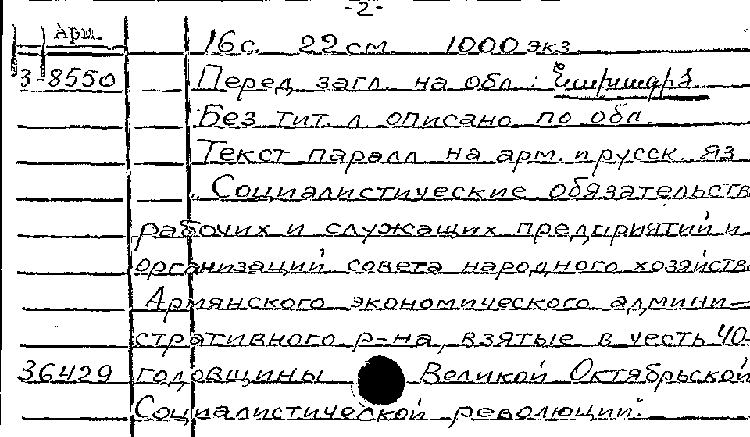 -2-
Арм. 16 с. 22 см. 1000 экз
3-8550 Перед загл. на обл.:
Без тит. л описано по обл.
Текст паралл на арм. и русск яз
Социалистические обязательств
рабочих и служащих предприятий и
организаций совета народного хозяйств
Армянского экономического админи-
стративного р-на, взятые в честь 40-
36429 годовщины Великой Октябрьской
Социалистической революции.